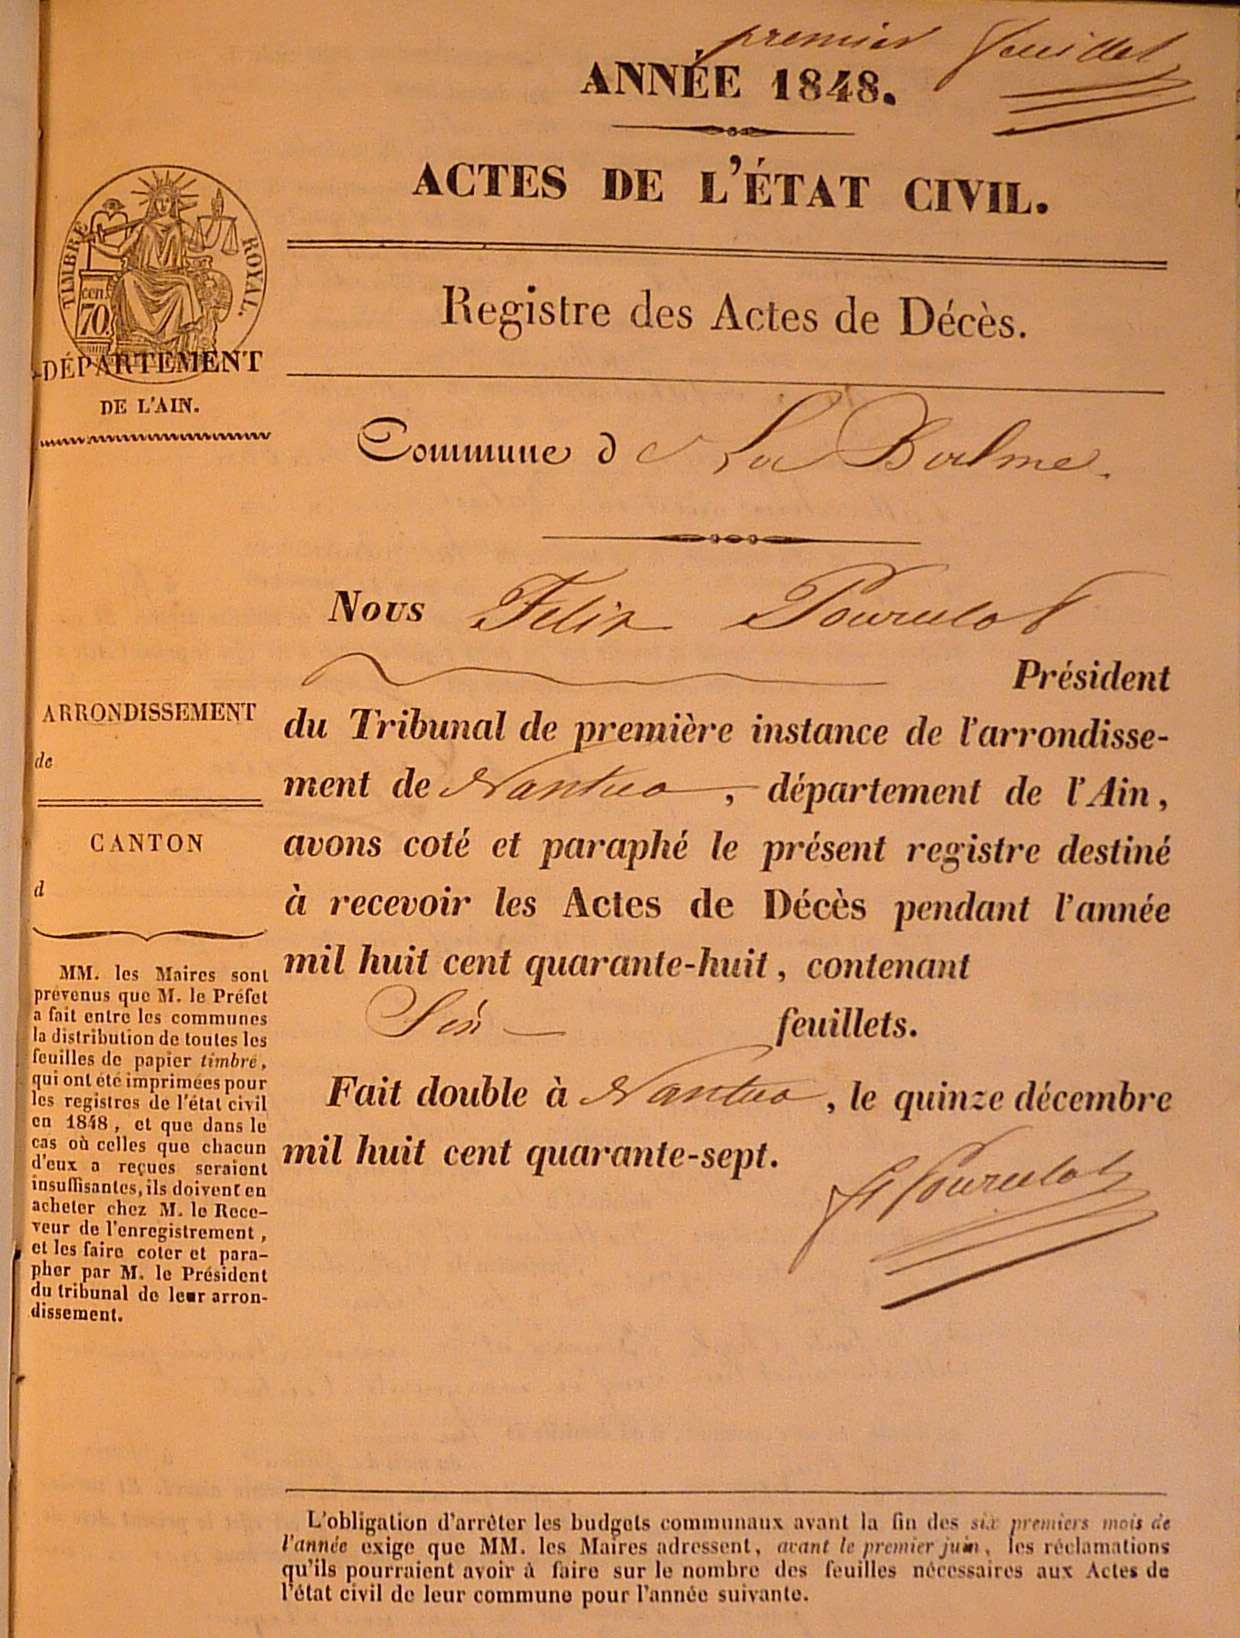 premier feuillet
ANNÉE 1848.
ACTES DE L'ÉTAT CIVIL.
TIMBRE ROYAL.
cen.
70
DÉPARTEMENT
DE L'AIN.
Registre des Actes de Décès.
Commune de La Balme.
Nous Felix
Président
du Tribunal de première instance de l'arrondisse-
ment de Nantua, département de l'Ain,
avons coté et paraphé le présent registre destiné
à recevoir les Actes de Décès pendant l'année
mil huit cent quarante-huit, contenant
feuillets.
Fait double à Nantua, le quinze décembre
mil huit cent quarante-sept.
ARRONDISSEMENT
de
CANTON
d
MM. les Maires sont
prévenus que M. le Préfet
a fait entre les communes
la distribution de toutes les
feuilles de papier timbré,
qui ont été imprimées pour
les registres de l'état civil
en 1848, et que dans le
cas où celles que chacun
d'eux a reçues seraient
insuffisantes, ils doivent en
acheter chez M. le Rece-
veur de l'enregistrement,
et les faire coter et para-
pher par M. le Président
du tribunal de leur arron-
dissement.
L'obligation d'arrêter les budgets communaux avant la fin des six premiers mois de
l'année exige que MM. les Maires adressent, avant le premier juin, les réclamations
qu'ils pourraient avoir à faire sur le nombre des feuilles nécessaires aux Actes de
l'état civil de leur commune pour l'année suivante.